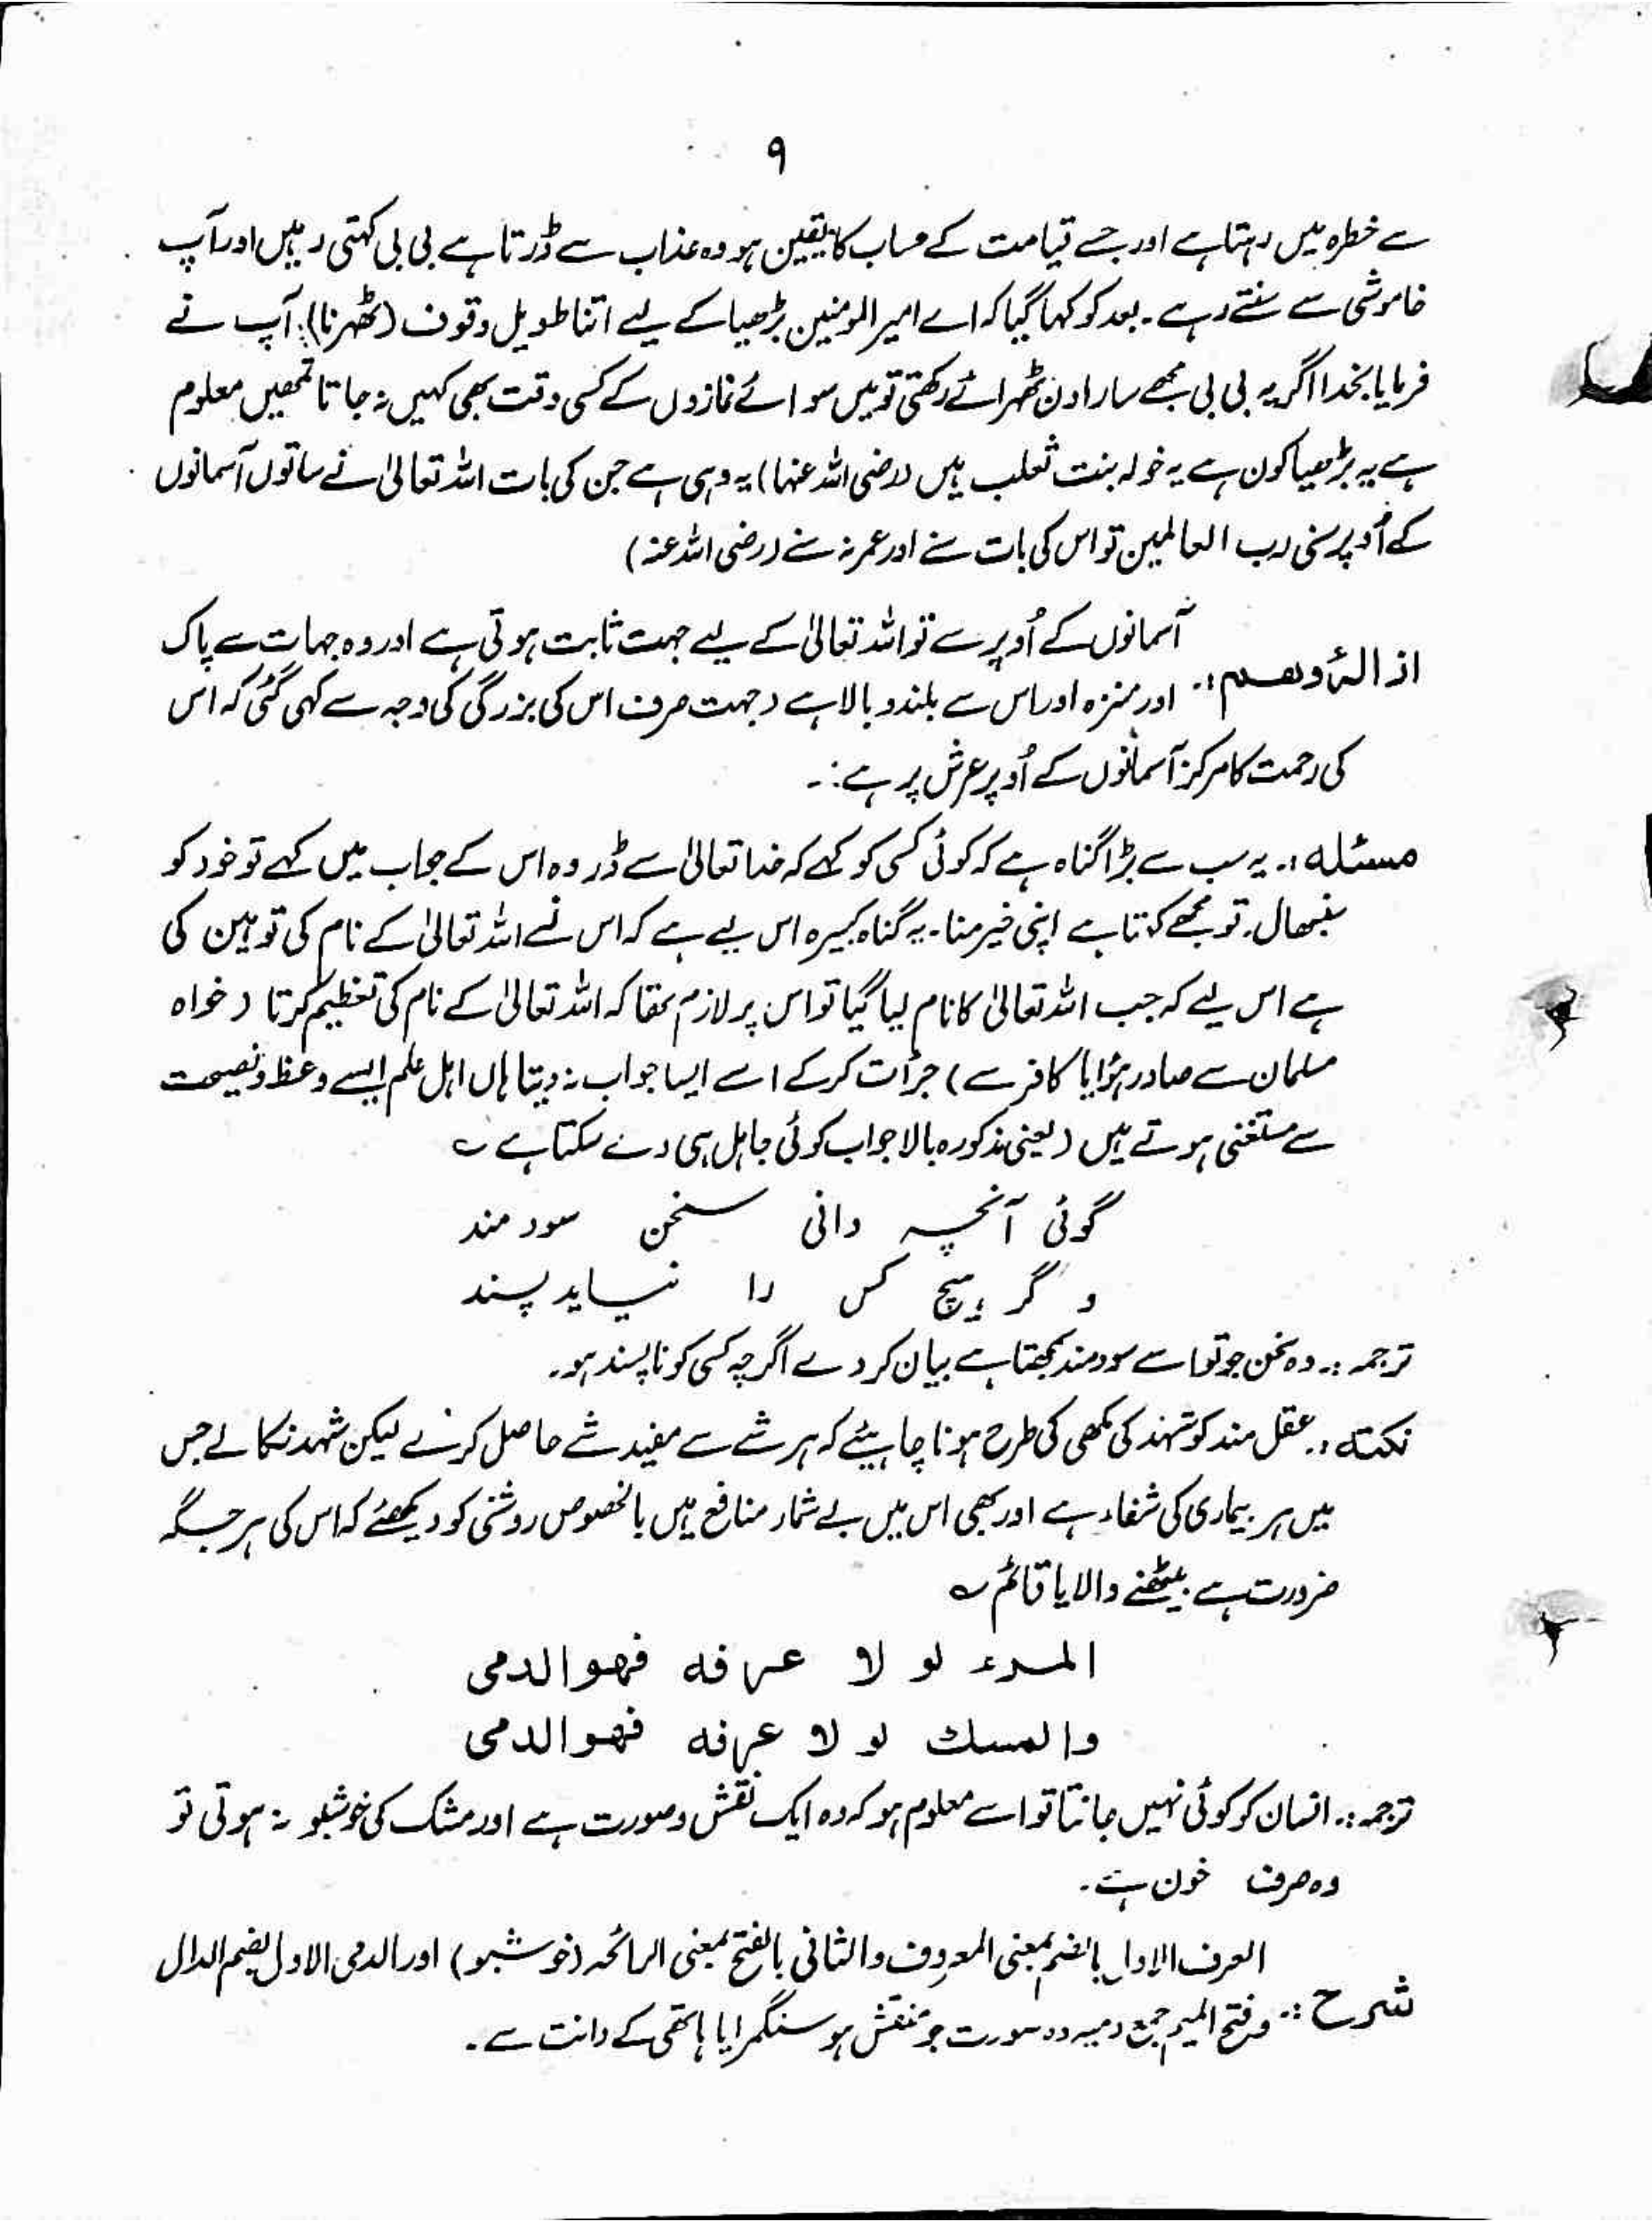 ۹
سے خطرہ میں رہتا ہے اور جسے قیامت کے حساب کا یقین ہو وہ عذاب سے ڈرتا ہے بی بی کہتی رہیں اور آپ
خاموشی سے سنتے رہے ۔ بعد کو کہا گیا کہ اے امیر المومنین بڑھیا کے لیے اتنا طویل وقوف (ٹھہرنا) : آپ نے
فرمایا بخدا اگر یہ بی بی مجھے سارا دن ٹھہرائے رکھتی تو میں سوائے نمازوں کے کسی وقت بھی کہیں نہ جاتا تمھیں معلوم
ہے یہ بڑھیا کون ہے یہ خولہ بنت ثعلب ہیں (رضی اللہ عنہا) یہ وہی ہے جن کی بات اللہ تعالیٰ نے ساتوں آسمانوں
کے اُوپر سنی رب العالمین تو اس کی بات سنے اور عمر نہ سنے (رضی اللہ عنہ)
آسمانوں کے اُوپر سے تو اللہ تعالیٰ کے لیے جہت ثابت ہوتی ہے اور وہ جہات سے پاک
ازالۂ وہم :۔ اور منزہ اور اس سے بلند و بالا ہے (جہت صرف اس کی بزرگی کی وجہ سے کہی گئی کہ اس
کی رحمت کا مرکز آسمانوں کے اُوپر عرش پر ہے :۔
مسئلہ :۔ یہ سب سے بڑا گناہ ہے کہ کوئی کسی کو کہے کہ خدا تعالیٰ سے ڈر وہ اس کے جواب میں کہے تو خود کو
سنبھال۔ تو مجھے کہتا ہے اپنی خیر منا ۔ یہ گناہ کبیرہ اس لیے ہے کہ اس نے اللہ تعالیٰ کے نام کی توہین کی
ہے اس لیے کہ جب اللہ تعالیٰ کا نام لیا گیا تو اس پر لازم تھا کہ اللہ تعالیٰ کے نام کی تعظیم کرتا (خواہ
مسلمان سے صادر ہؤا یا کافر سے) جرأت کر کے اسے ایسا جواب نہ دیتا ہاں اہل علم ایسے وعظ و نصیحت
سے مستغنی ہوتے ہیں (یعنی مذکورہ بالا جواب کوئی جاہل ہی دے سکتا ہے ؎
گوئی آنچہ دانی سخن سود مند
و گر ہیچ کس را نیاید پسند
ترجمہ :۔ وہ سخن جو تو اسے سود مند سمجھتا ہے بیان کر دے اگرچہ کسی کو ناپسند ہو۔
نکتہ :۔ عقل مند کو شہد کی مکھی کی طرح ہونا چاہیئے کہ ہر شے سے مفید شے حاصل کرنے لیکن شہد نکالے جس
میں ہر بیماری کی شفاء ہے اور بھی اس میں بے شمار منافع ہیں بالخصوص روشنی کو دیکھئے کہ اس کی ہر جگہ
ضرورت ہے بیٹھنے والا یا قائم ؎
المرء لو لا عرفه فهو الدمى
والمسك لو لا عرفه فهو الدمى
ترجمہ :۔ انسان کو کوئی نہیں جانتا تو اسے معلوم ہو کہ وہ ایک نقش و صورت ہے اور مشک کی خوشبو نہ ہوتی تو
وہ صرف خون ہے ۔
العرف الاول بالضم بمعنی المعروف والثانی بالفتح بمعنی الرائحہ (خوشبو) اور الدمی الاول بضم الدال
شرح :۔ و فتح المیم جمع دمیہ وہ صورت جو منقش ہو سنگمرا یا ہاتھی کے دانت سے ۔